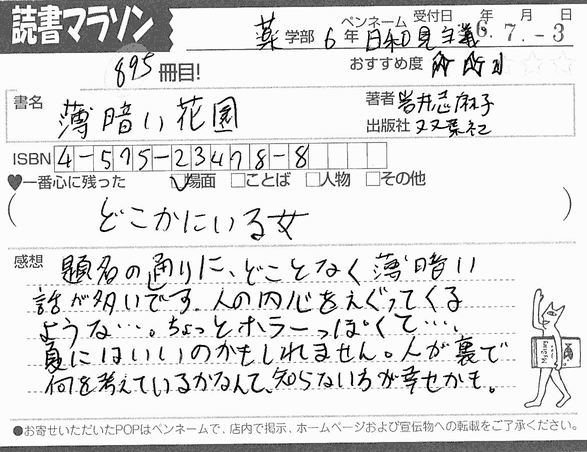 読書マラソン
ペンネーム 受付日 年 月 日
薬学部 6年 日和見主義 6.7.-3
895冊目! おすすめ度
書名 薄暗い花園
著者 岩井志麻子
出版社 双葉社
ISBN 4-575-23478-8
♥一番心に残った ☑場面 □ことば □人物 □その他
(どこかにいる女)
感想 題名の通りに、どことなく薄暗い
話が多いです。人の内心をえぐってくる
ような…。ちょっとホラーっぽくて…、
夏にはいいのかもしれません。人が裏で
何を考えているかなんて、知らない方が幸せかも。
●お寄せいただいたPOPはペンネームで、店内で掲示、ホームページおよび宣伝物への転載をご了承ください。